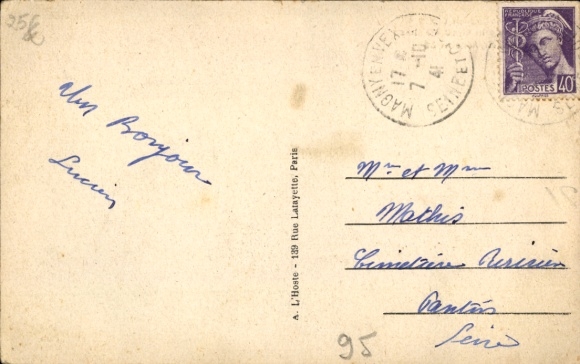 25
Un Bonjour
Lucien
A. L'Hoste - 139 Rue Lafayette, Paris
MAGNY EN VEXIN
SEINE ET OISE
17 H
7 -10
41
RÉPUBLIQUE FRANÇAISE
POSTES 40
Mr et Mme
Mathis
Cimetière Parisien
Pantin
Seine
95